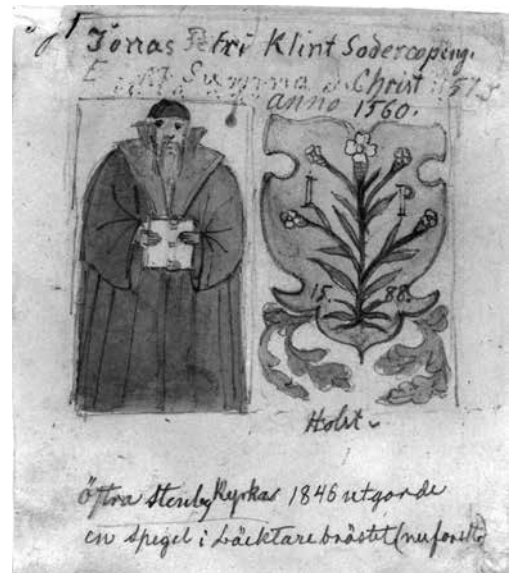 Jonas Petri Klint Sodercoping.
Summa Christ 157
anno 1560.
I P
15. 88.
Holst
Östra Stenby Kyrka 1846 utgorde
en spegel i Läcktare bröstet (nu